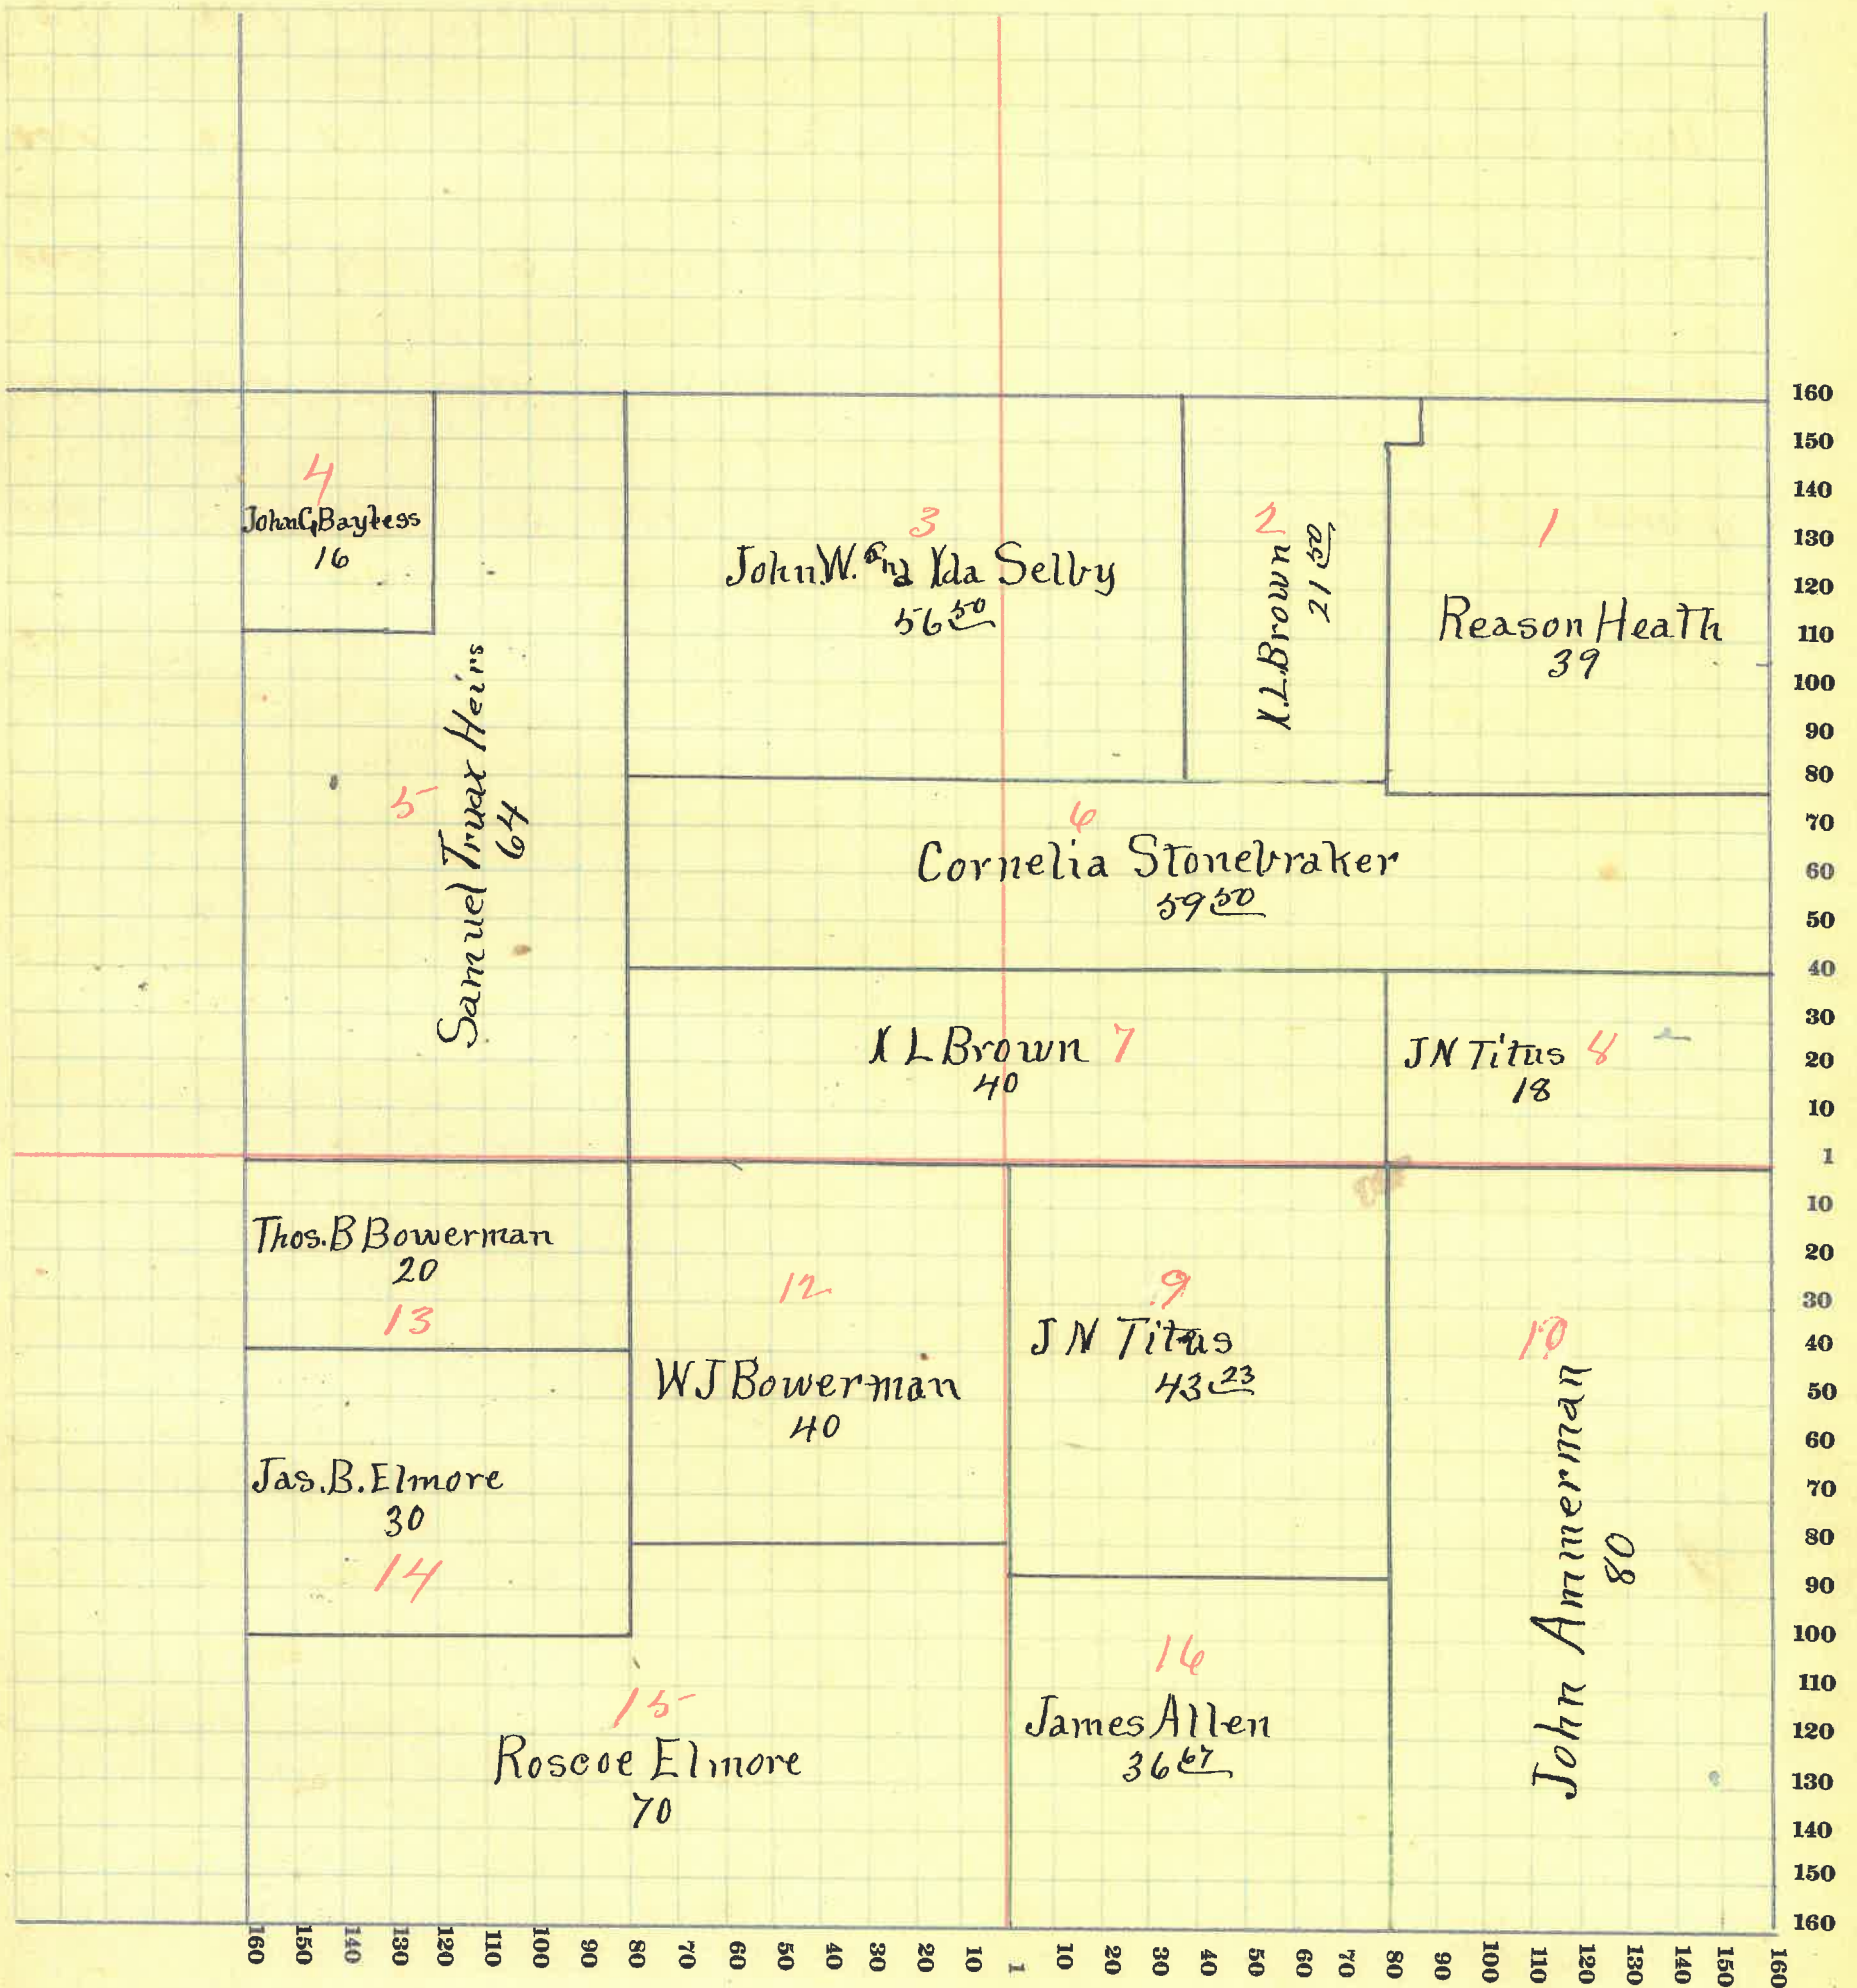 4
John G Bayless
16
3
John W. and Ida Selby
56 50
2
X. L Brown
21 50
1
Reason Heath
39
5
Samuel Truax Heirs
64
6
Cornelia Stonebraker
59 50
X L Brown 7
40
J N Titus 8
18
Thos. B Bowerman
20
13
12
W J Bowerman
40
9
J N Titus
43 23
10
John Ammerman
80
Jas. B. Elmore
30
14
15
Roscoe Elmore
70
16
James Allen
36 67
160
150
140
130
120
110
100
90
80
70
60
50
40
30
20
10
1
10
20
30
40
50
60
70
80
90
100
110
120
130
140
150
160
160 150 140 130 120 110 100 90 80 70 60 50 40 30 20 10 1 10 20 30 40 50 60 70 80 90 100 110 120 130 140 150 160